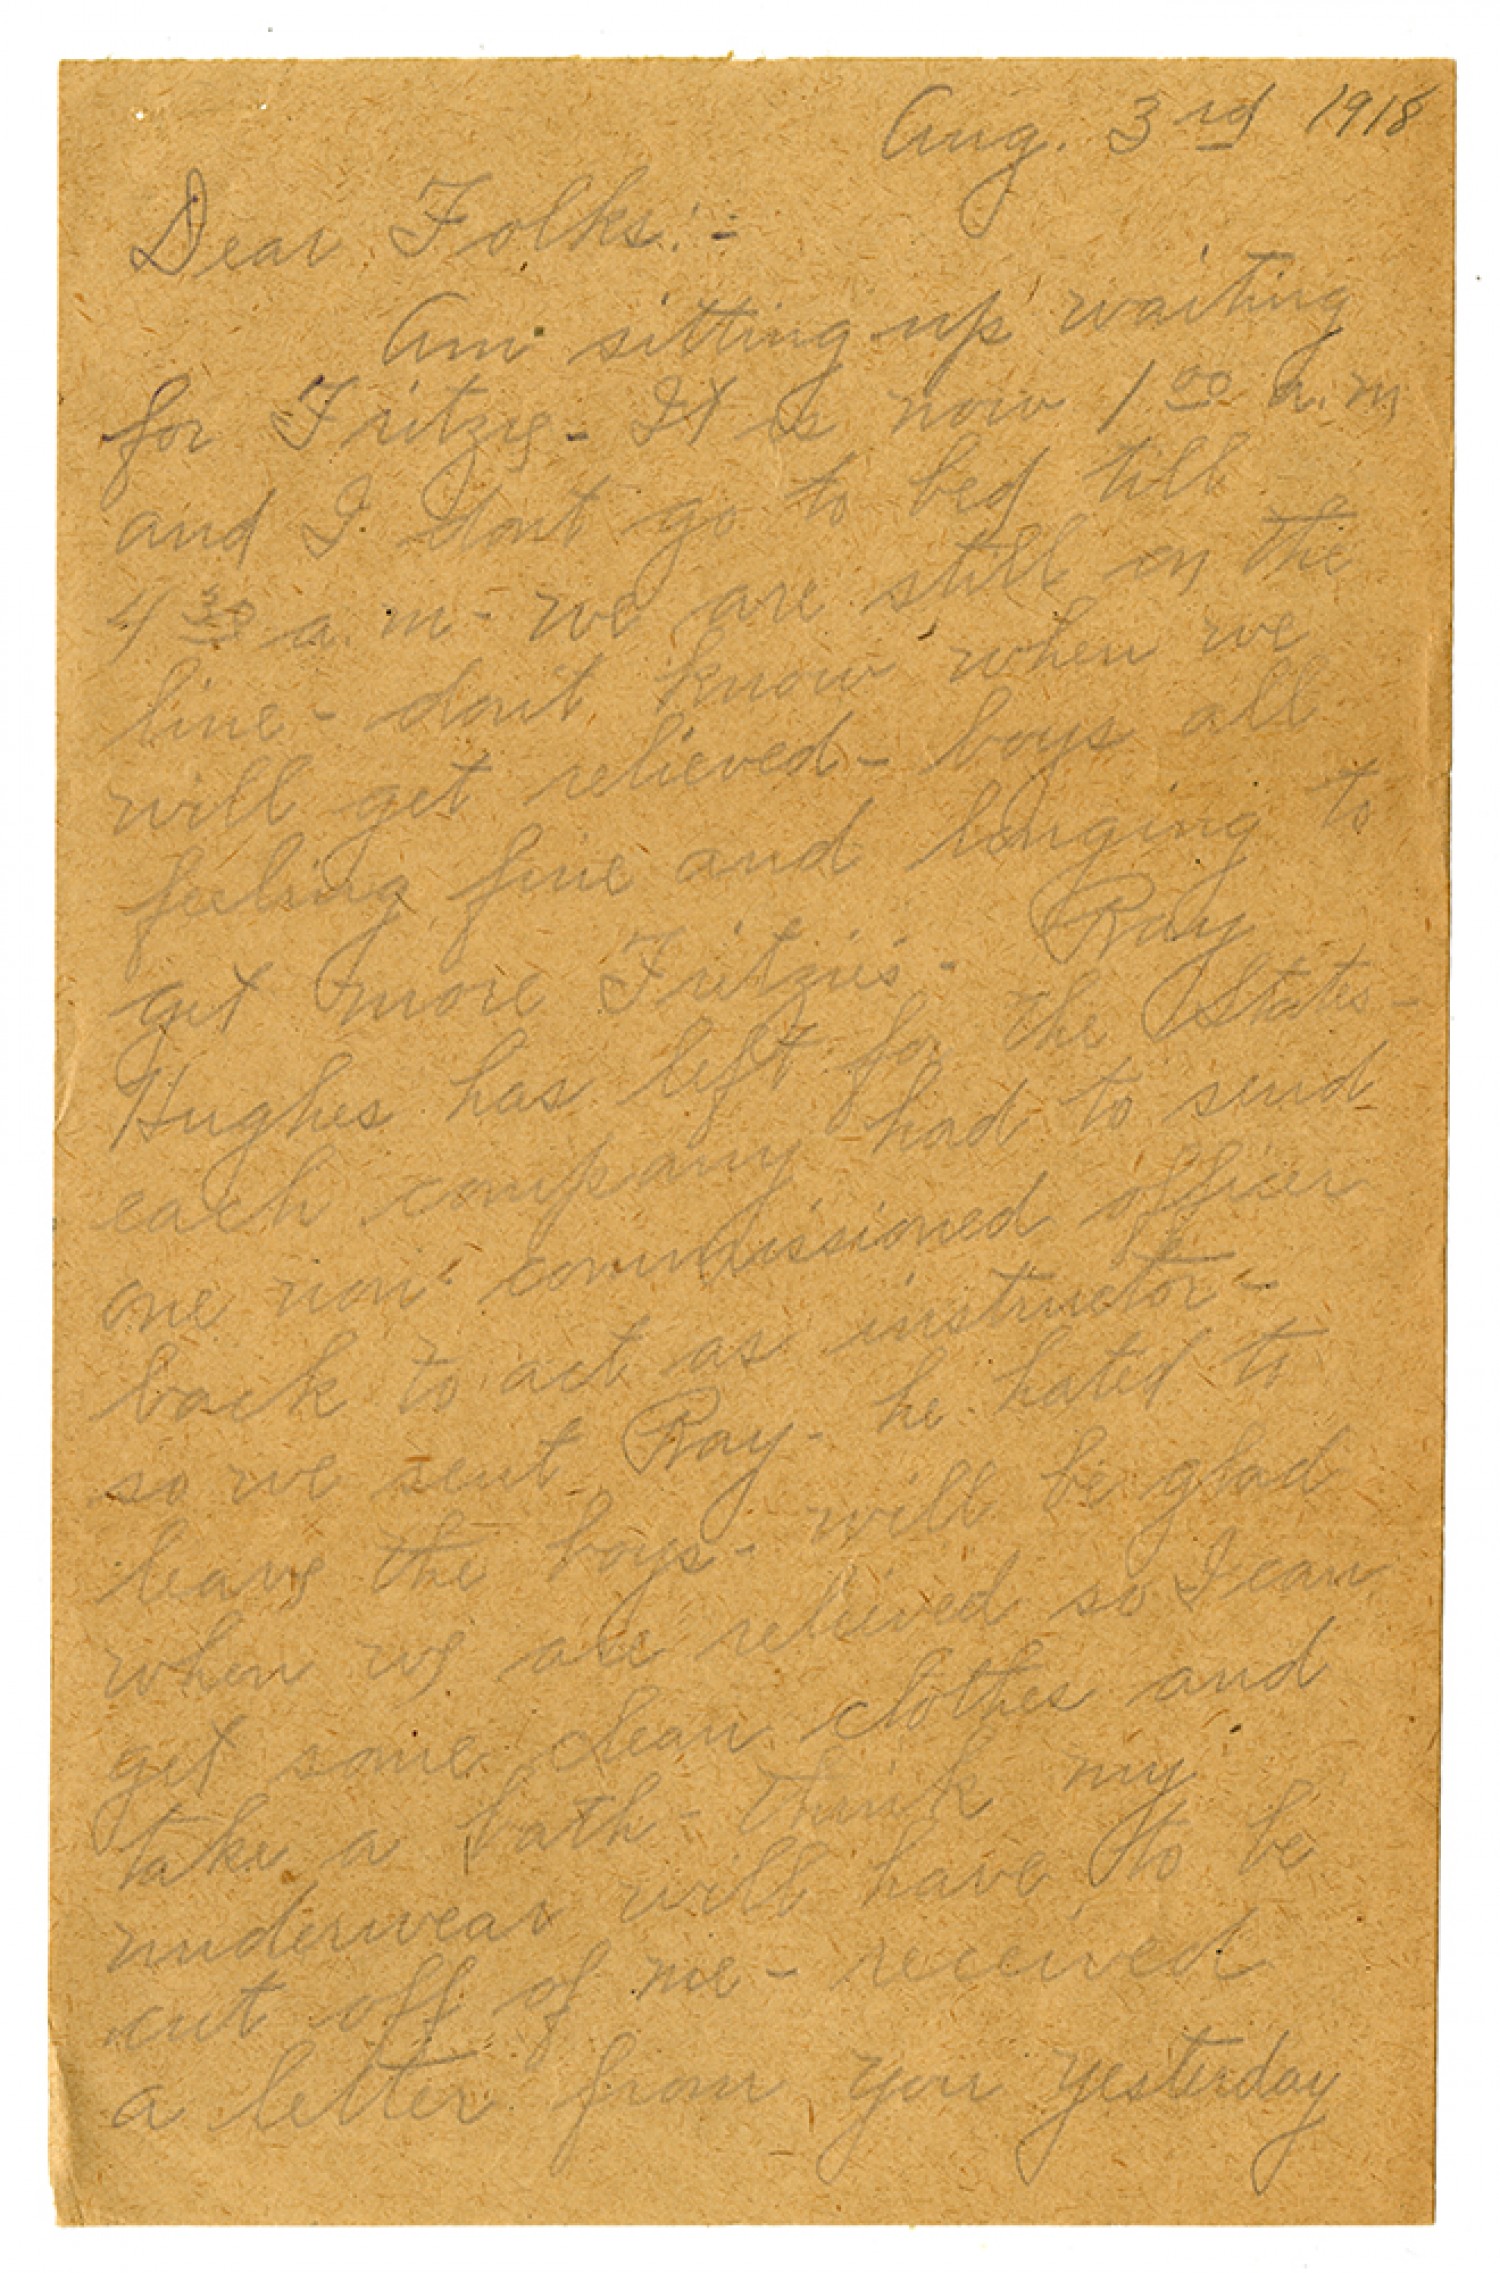 Aug. 3rd 1918
Dear Folks:-
Am sitting up waiting
for Fritzy - It is now 1 00 a.m
and I dont go to bed till
4 30 a.m - we are still on the
line - don't know when we
will get relieved - boys all
feeling fine and longing to
get more Fritzies - Ray
Hughes has left for the States -
each company had to send
one non-commissioned officer
back to act as instructor -
so we sent Ray - he hated to
leave the boys - will be glad
when we are relieved so I can
get some clean clothes and
take a bath - think my
underwear will have to be
cut off of me - received
a letter from you yesterday